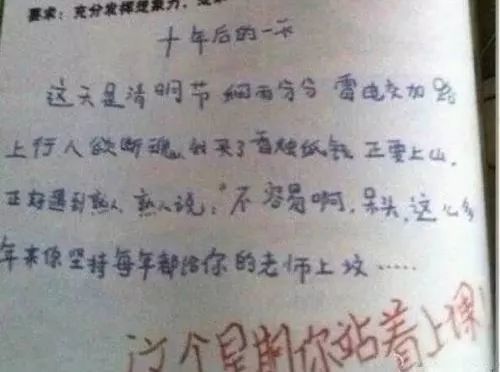 要求：充分发挥想象力，
十年后的一天
这天是清明节 细雨分分 雷电交加 路
上行人欲断魂，我买了香烛纸钱 正要上山，
正好遇到熟人，熟人说："不容易啊，呆头，这么多
年来你坚持每年都给你的老师上坟……
这个星期你站着上课！